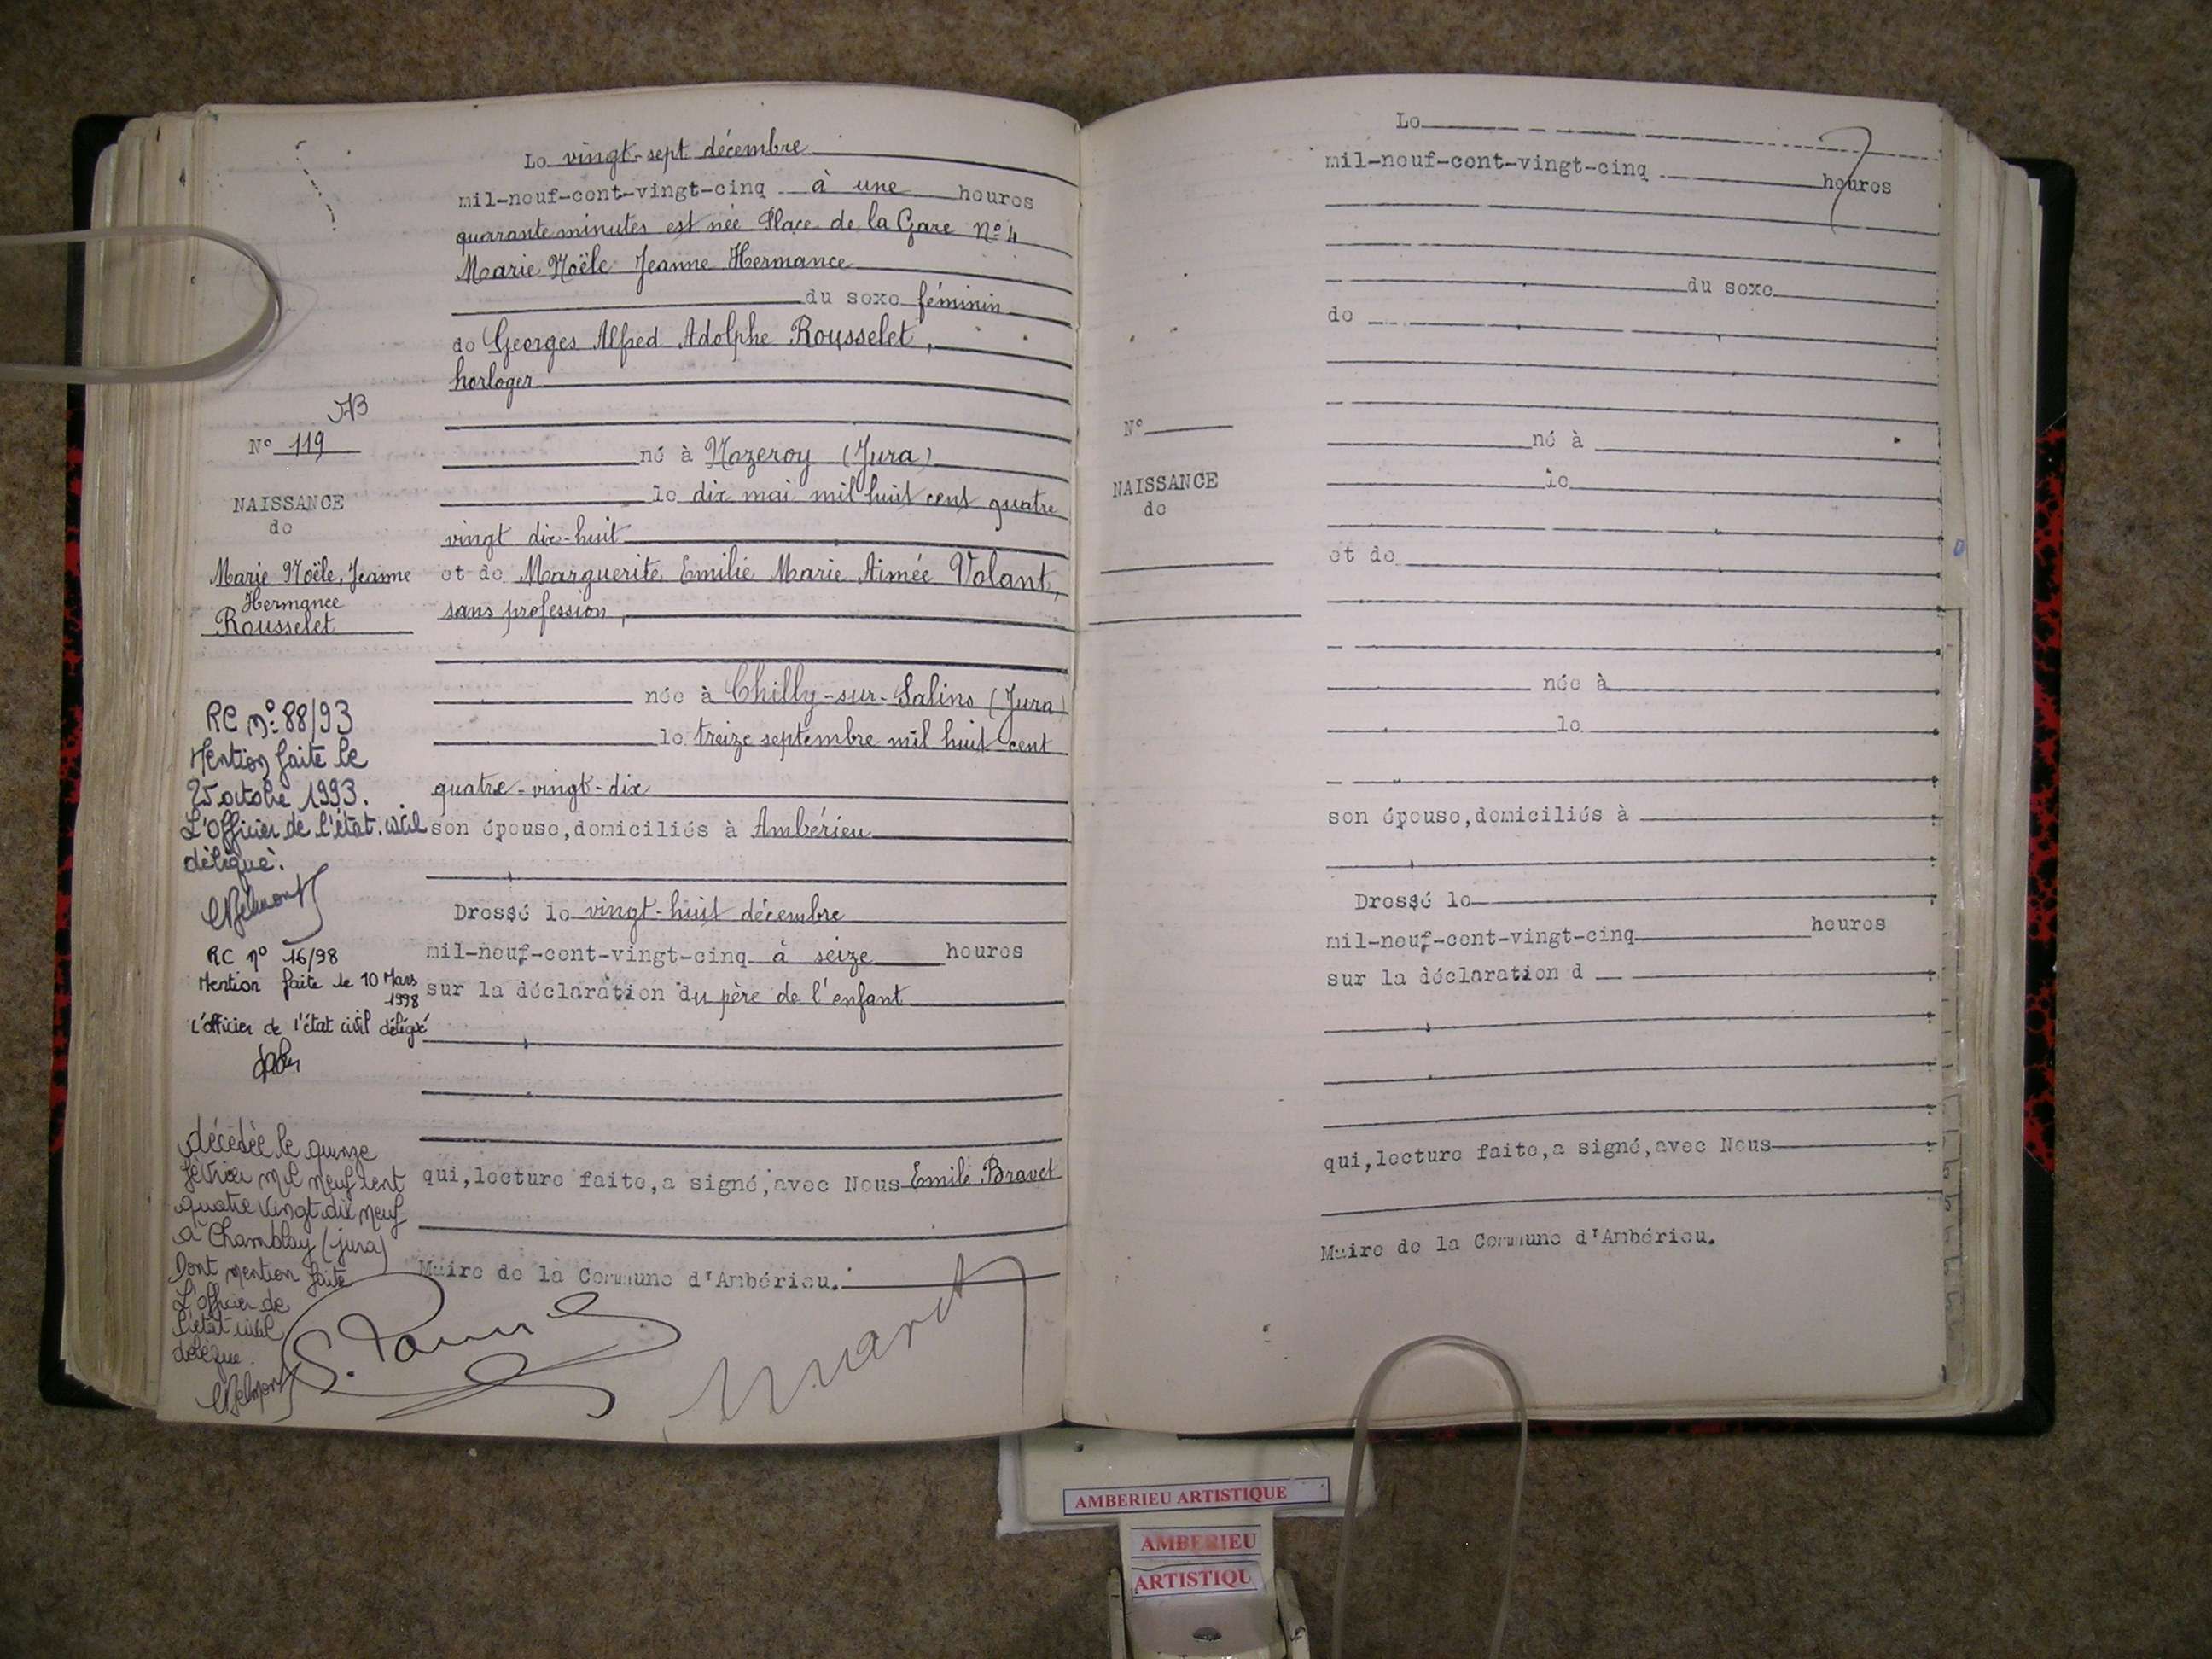 Le vingt-sept décembre
mil-neuf-cent-vingt-cinq à une heures
quarante minutes est née Place de la Gare Nº 4
Marie Noële Jeanne Hermance
du sexe féminin
de Georges Alfred Adolphe Rousselet,
horloger
N° 119
né à Nozeroy (Jura)
le dix mai mil huit cent quatre
vingt dix-huit
NAISSANCE
de
Marie Noële, Jeanne
Hermance
Rousselet
et de Marguerite Emilie Marie Aimée Volant,
sans profession,
née à Chilly-sur-Salins (Jura)
le treize septembre mil huit cent
quatre-vingt-dix
son épouse, domiciliés à Ambérieu
Dressé le vingt-huit décembre
mil-neuf-cent-vingt-cinq à seize heures
sur la déclaration du père de l'enfant
qui, lecture faite, a signé, avec Nous Emile Bravet
Maire de la Commune d'Ambérieu.
RC nº 88/93
Mention faite le
25 octobre 1993.
L'Officier de l'état.civil
délégué.
RC nº 16/98
Mention faite le 10 Mars
1998
L'officier de l'état civil délégué
décédée le quinze
février mil neuf cent
quatre vingt dix neuf
à Chamblay (jura)
Dont mention faite
L'officier de
l'état civil
délégué.
Le
mil-neuf-cent-vingt-cinq heures
du sexe
de
N°
né à
le
NAISSANCE
de
et de
née à
le
son épouse, domiciliés à
Dressé le
mil-neuf-cent-vingt-cinq heures
sur la déclaration d
qui, lecture faite, a signé, avec Nous
Maire de la Commune d'Ambérieu.
AMBERIEU ARTISTIQUE
AMBERIEU
ARTISTIQU